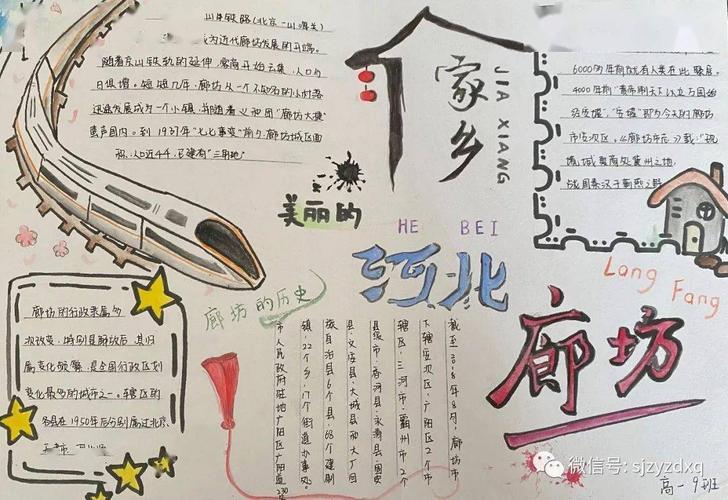 山铁路(北京—山海关)
为近代廊坊发展的开端。
随着京山铁轨的延伸,客商开始云集,人口与
日俱增。短短几年,廊坊从一个不知名的小村落
迅速发展成为一个小镇,并随着义和团“廊坊大捷”
声国内。到1937年“七七事变”前夕,廊坊城区面
积,人口近4千,已建有“三角地”
家乡
JIA XIANG
6000多年前就有人类在此
4000年前“黄帝制天下以立万国始
经安墟”,“安墟”即为今天的廊坊
市安次区。《廊坊市
战国
美丽的
HE BEI
河北
廊坊的历史
Lang Fang
廊坊
廊坊的行政隶属多
次改变,特别是解放后,其归
属变化频繁,是全国行政区划
变化最多的城市之一。辖区的
各县在1950年后分别属过北京、
截至2018年8月,廊坊市
下辖安次区、广阳区2个市
辖区;三河市、霸州市2个
县级市;香河县、永清县、固安
县、文安县、大城县和大厂回
族自治县6个县;68个建制
镇,22个乡,17个街道办事处。
市人民政府驻地广阳区广阳道230
高一9班
微信号: sjzyzdxq